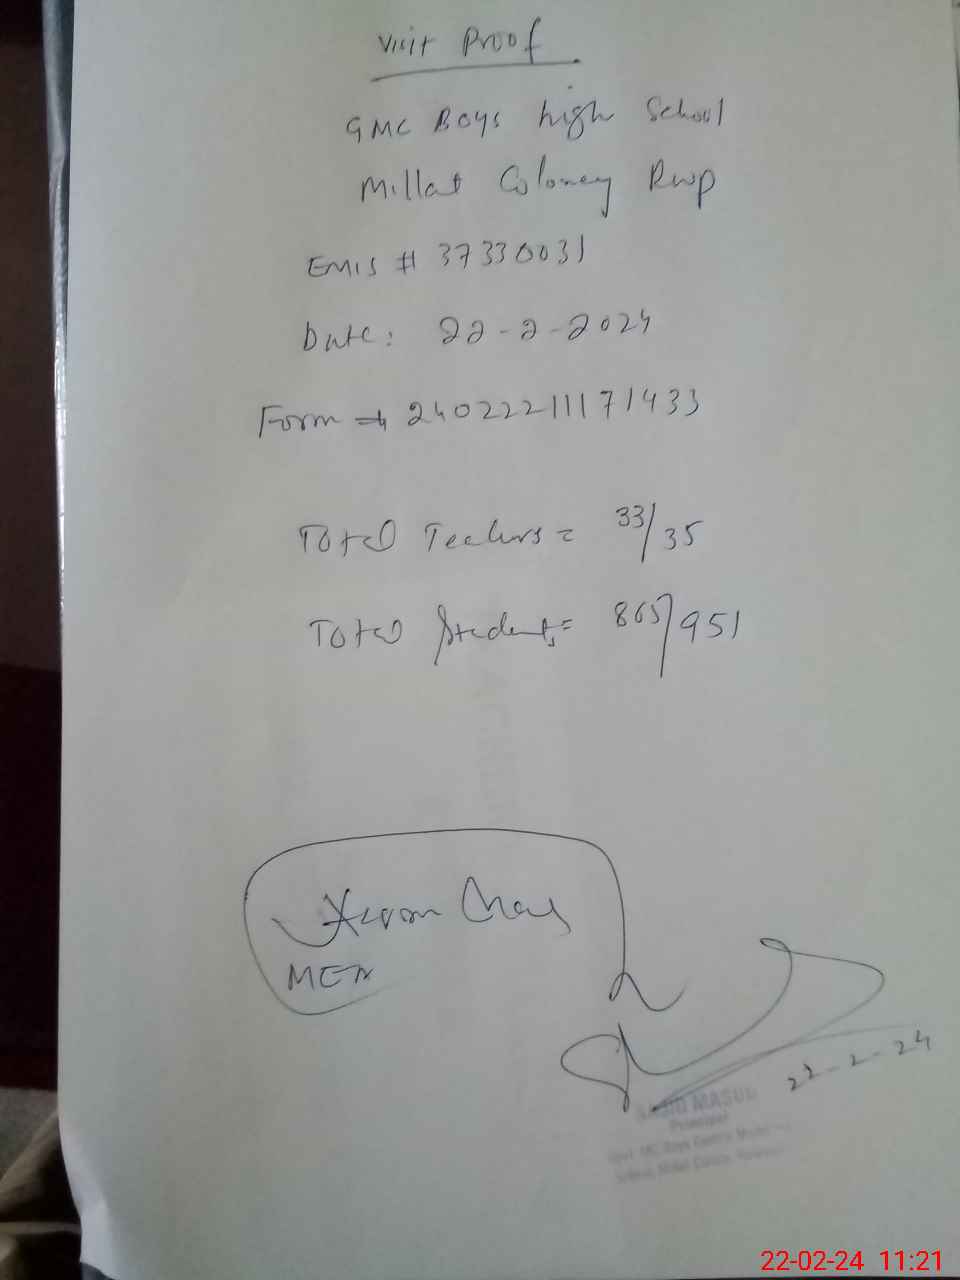 Visit Proof
GMC Boys high School
Millat Coloney Rwp
EMIS # 37330031
Date: 22-2-2024
Form # 24022211171433
Total Teachers = 33/35
Total Students = 865/951
22-2-24
MASUD
Principal
22-02-24 11:21